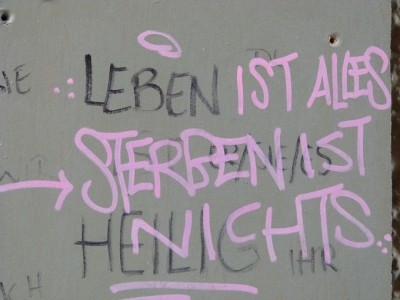 LEBEN IST ALLES
STERBEN IST
NICHTS
HEILIG IHR